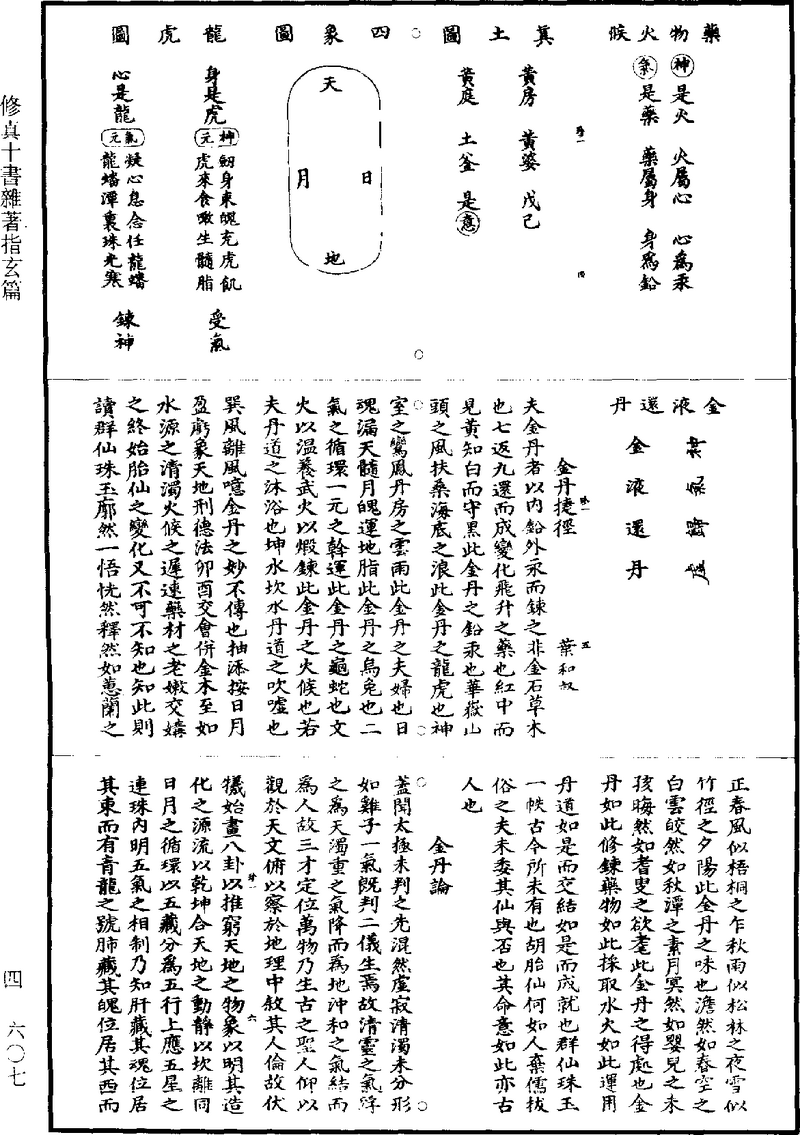 藥物火候
神是火 火屬心 心爲汞
氣是藥 藥屬身 身爲鉛
真土圖
黃房 黃婆 戊己
黃庭 土釜 是意
四象圖
天
日
月
地
龍虎圖
身是虎 元神 劒身東魄充虎飢 受氣
虎來食噉生髓脂
心是龍 元氣 凝心息念任龍蟠
龍蟠潭裏珠光寒 鍊神
金液還丹
金液還丹
金丹捷徑
葉和叔
夫金丹者以内鉛外汞而鍊之非金石草木
也七返九還而成變化飛升之藥也紅中而
見黃知白而守黑此金丹之鉛汞也華嶽山
頭之風扶桑海底之浪此金丹之龍虎也神
室之鸞鳳丹房之雲雨此金丹之夫婦也日
魂漏天髓月魄運地脂此金丹之烏兔也二
氣之循環一元之斡運此金丹之龜蛇也文
火以温養武火以煅鍊此金丹之火候也若
夫丹道之沐浴也坤水坎水丹道之吹噓也
巽風離風噫金丹之妙不傳也抽添按日月
盈虧象天地刑德法卯酉交會併金木至如
水源之清濁火候之遲速藥材之老嫩交媾
之終始胎仙之變化又不可不知也知此則
讀群仙珠玉廓然一悟恍然釋然如蕙蘭之
正春風似梧桐之乍秋雨似松林之夜雪似
竹徑之夕陽此金丹之味也澹然如春空之
白雲皎然如秋潭之素月冥然如嬰兒之未
孩晦然如耆叟之欲耄此金丹之得處也金
丹如此修鍊藥物如此採取水火如此運用
丹道如是而交結如是而成就也群仙珠玉
一帙古今所未有也胡胎仙何如人棄儒拔
俗之夫未委其仙與否也其命意如此亦古
人也
金丹論
蓋聞太極未判之先混然虛寂清濁未分形
如雞子一氣旣判二儀生焉故清靈之氣浮
之爲天濁重之氣降而爲地沖和之氣結而
爲人故三才定位萬物乃生古之聖人仰以
觀於天文俯以察於地理中敘其人倫故伏
犧始畫八卦以推窮天地之物象以明其造
化之源流以乾坤合天地之動靜以坎離同
日月之循環以五藏分爲五行上應五星之
連珠内明五氣之相制乃知肝藏其魂位居
其東而有青龍之號肺藏其魄位居其西而
修真十書雜著指玄篇
四 六〇七